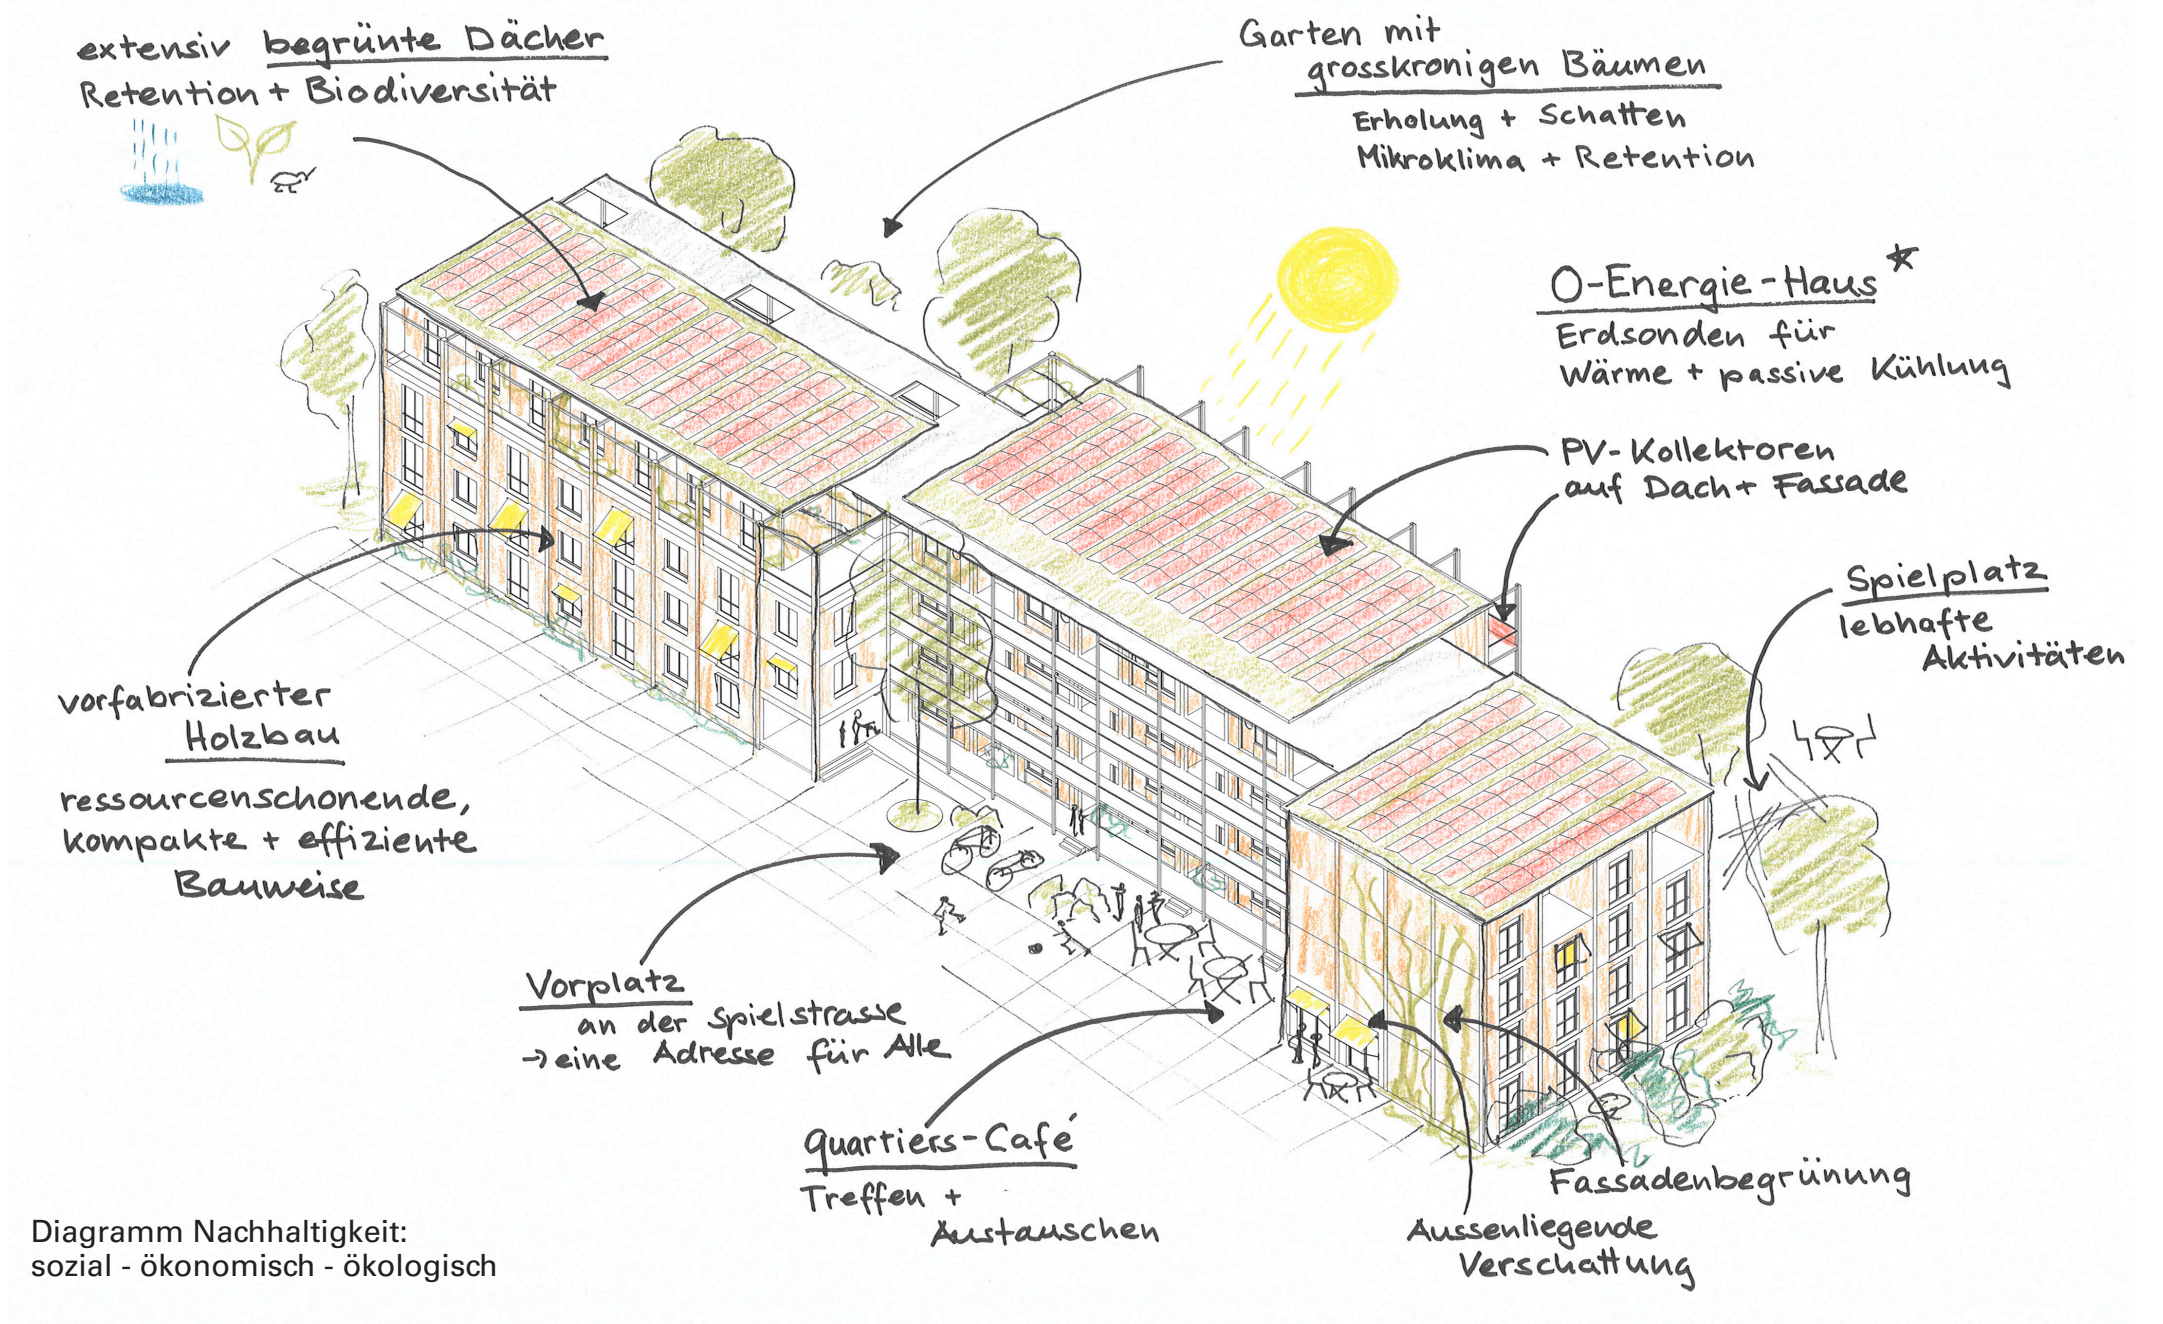 extensiv begrünte Dächer
Retention + Biodiversität
Garten mit
grosskronigen Bäumen
Erholung + Schatten
Mikroklima + Retention
O-Energie-Haus*
Erdsonden für
Wärme + passive Kühlung
PV-Kollektoren
auf Dach + Fassade
Spielplatz
lebhafte
Aktivitäten
vorfabrizierter
Holzbau
ressourcenschonende,
kompakte + effiziente
Bauweise
Vorplatz
an der Spielstrasse
→ eine Adresse für Alle
Quartiers-Café
Treffen +
Austauschen
Fassadenbegrünung
Aussenliegende
Verschattung
Diagramm Nachhaltigkeit:
sozial - ökonomisch - ökologisch